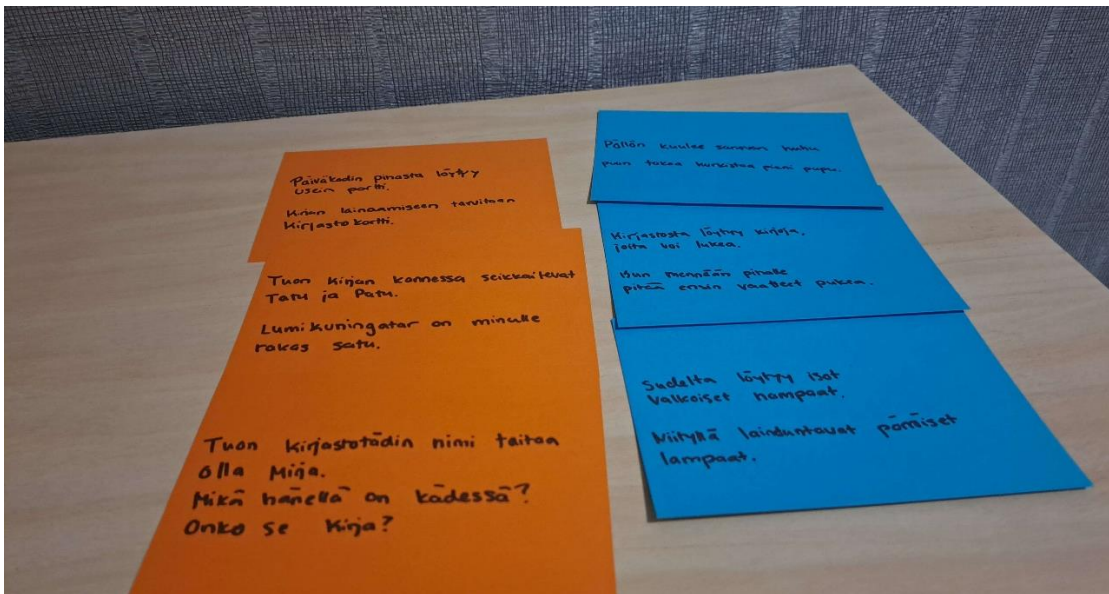 Päiväkodin pihasta löytyy
usein portti.
Kirjan lainaamiseen tarvitaan
Kirjastokortti.
Tuon kirjan kannessa seikkailevat
Tatu ja Patu.
Lumikuningatar on minulle
rakas satu.
Tuon kirjastotädin nimi taitaa
olla Mirja.
Mikä hänellä on kädessä?
Onko se kirja?
Pöllön kuulee sanovan huhuu
puun takaa kurkistaa pieni pupu.
Kirjastosta löytyy kirjoja,
joita voi lukea.
Kun mennään pihalle
pitää ensin vaatteet pukea.
Sudelta löytyy isot
valkoiset hampaat.
Niityllä laiduntavat
lampaat.